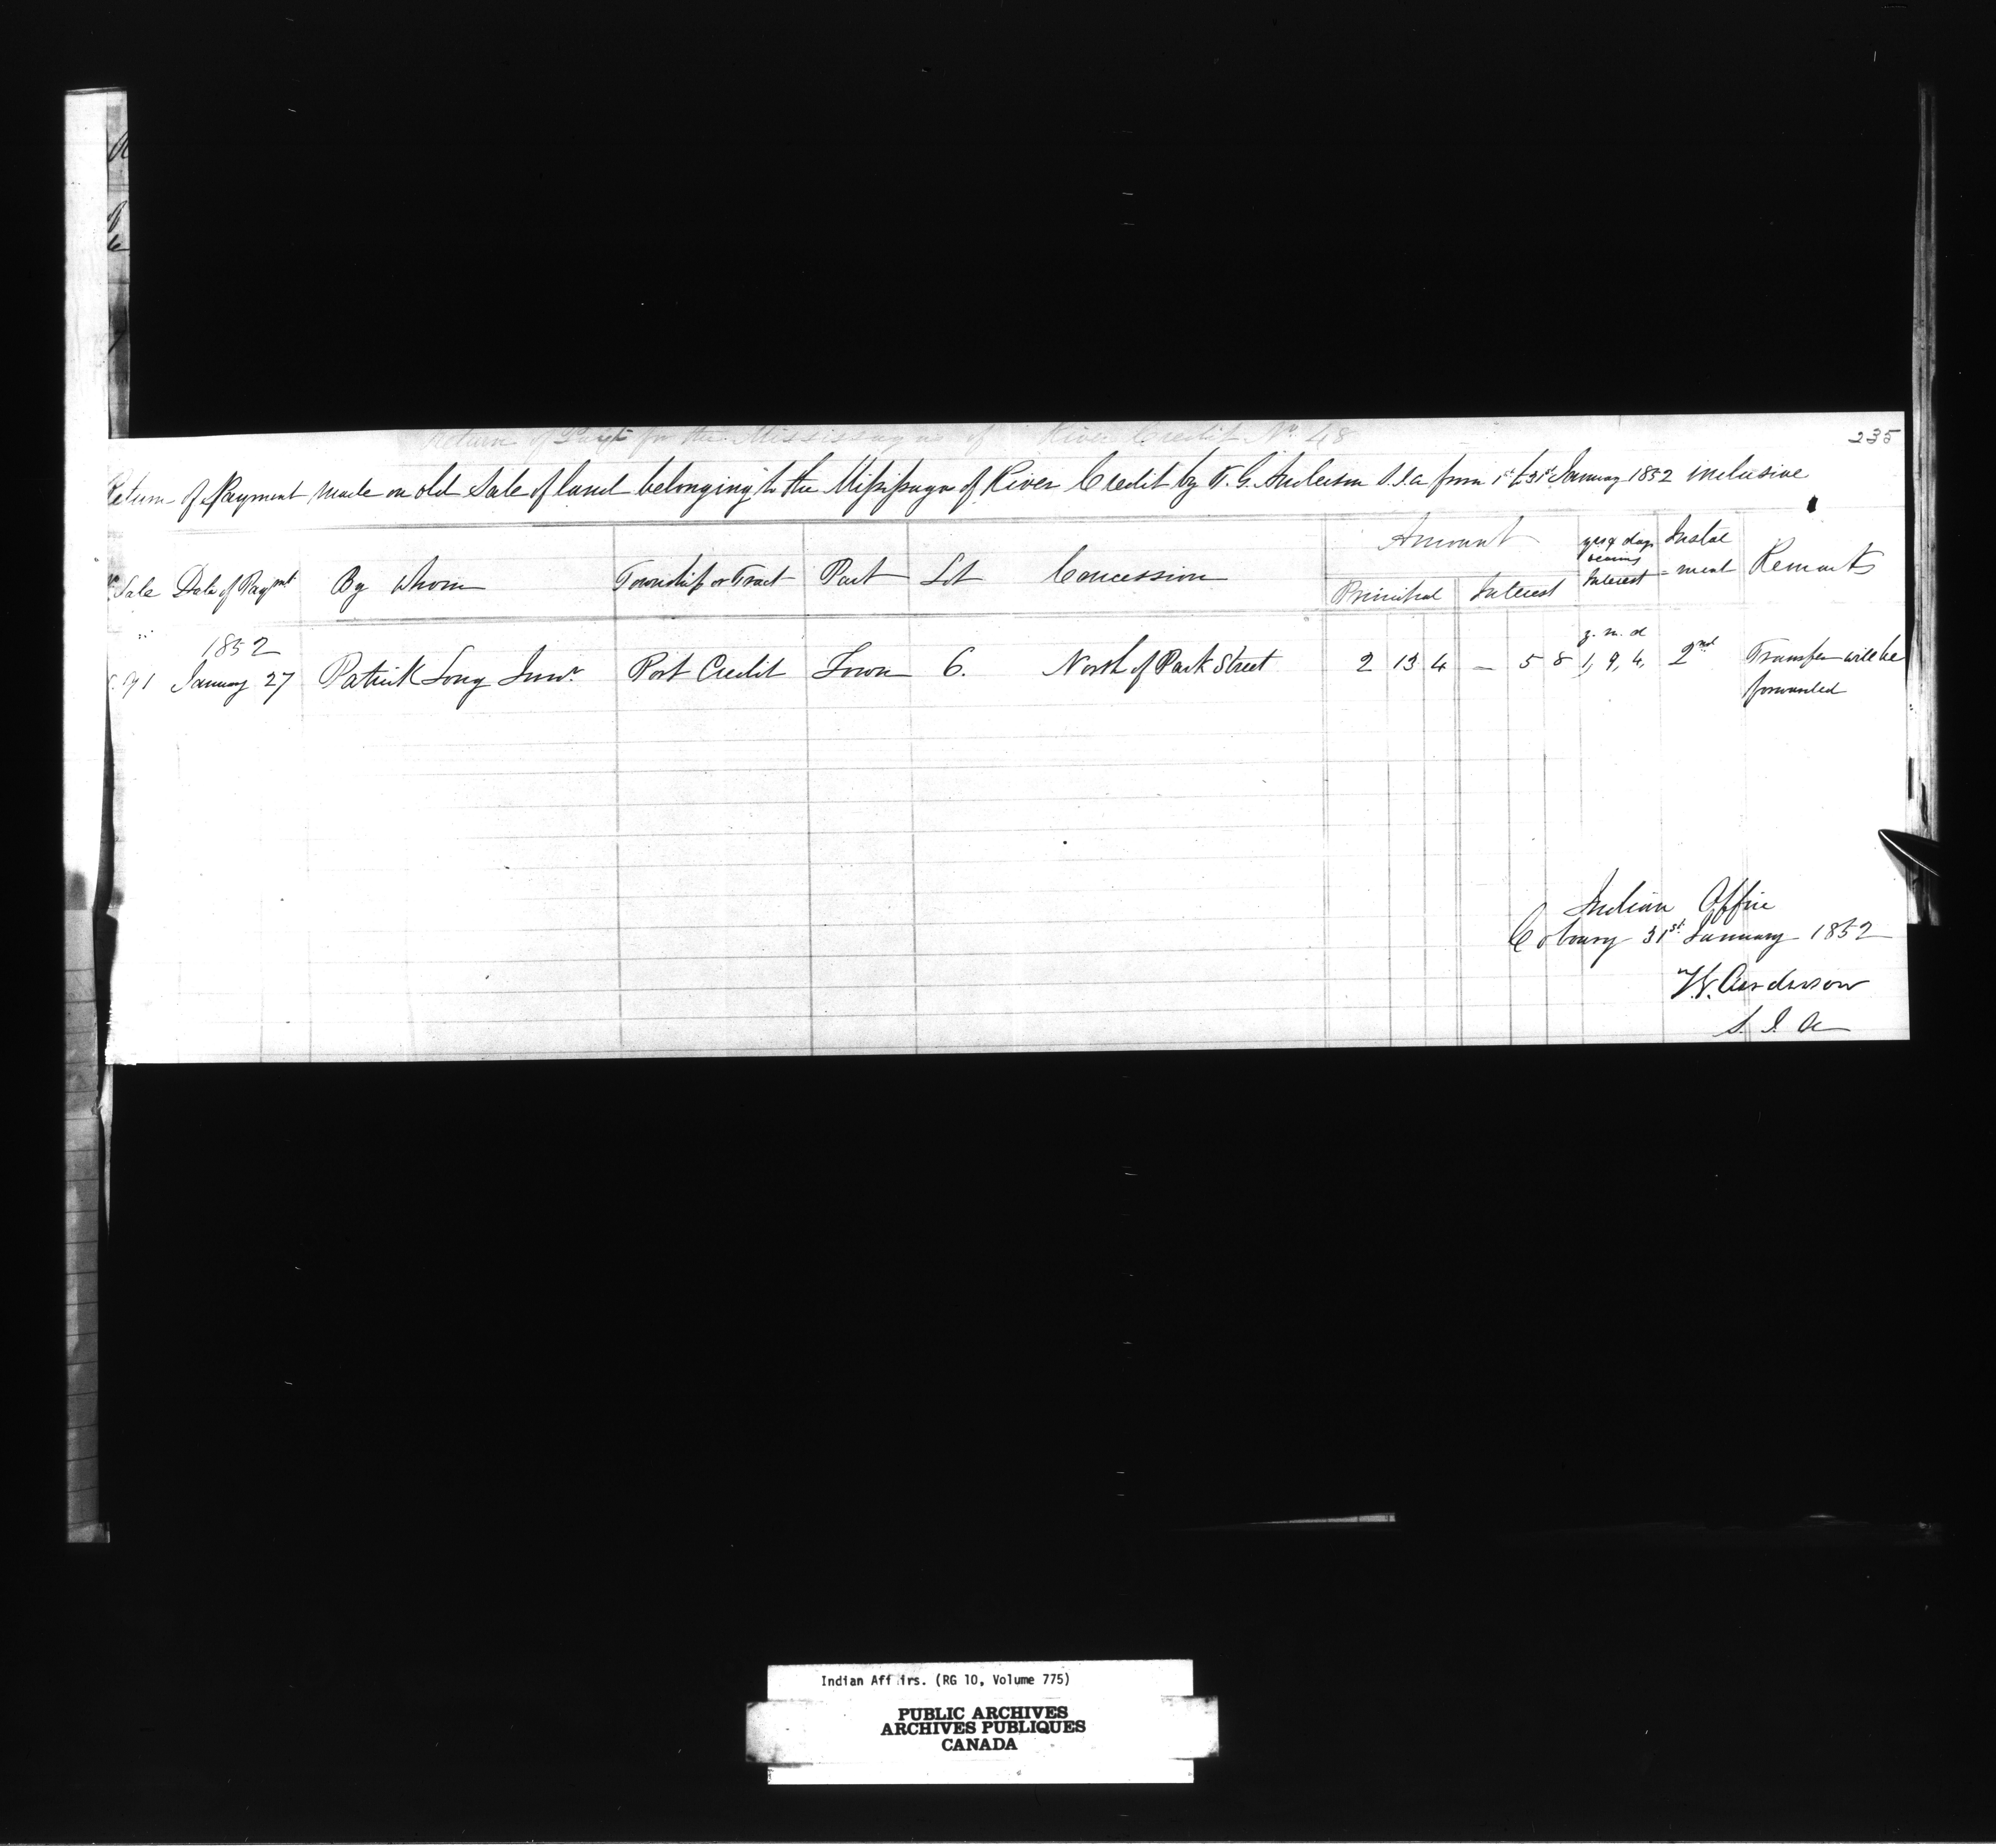 Return of Payt for the Mississaguas of River Credit No. 48
235
Return of Payment made on old Sale of land belonging to the Missisaga of River Credit by T. G. Anderson S.I.A from 1st to 31st January 1852 inclusive
Sale Date of Paymt By whom Township or Tract Part Lot Concession Amount Principal Interest yrs & days bearing Interest Instal=ment Remarks
1852 y. m. d
71 January 27 Patrick Long Junr Port Credit Town 6. North of Park Street 2 13 4 — 5 8 1, 9, 4, 2nd Transfer will be
forwarded
Indian Office
Cobourg 31st January 1852
T.G. Anderson
S. I. A
Indian Aff irs. (RG 10, Volume 775)
PUBLIC ARCHIVES
ARCHIVES PUBLIQUES
CANADA